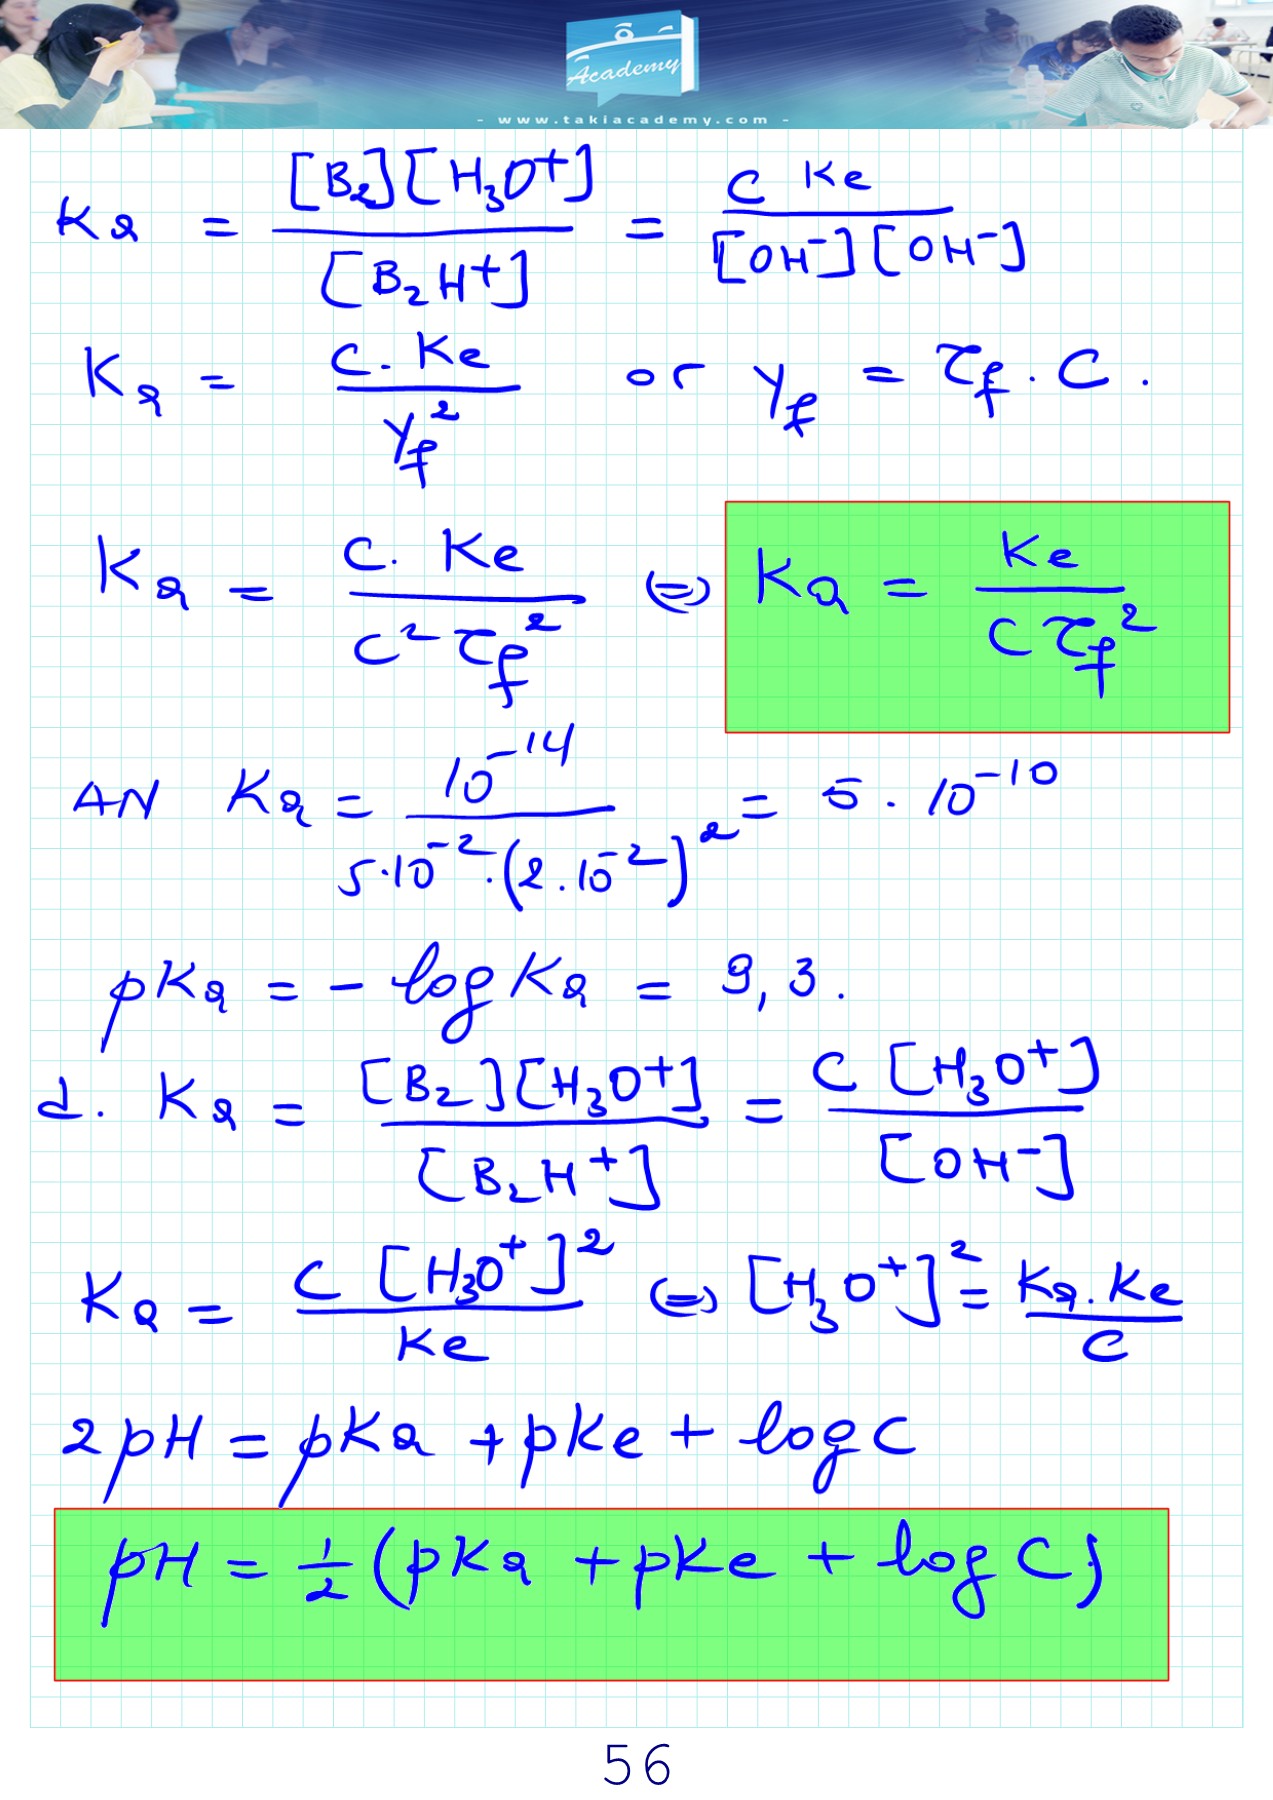 Academy
- www.takiacademy.com -
Ka = [B2][H3O+] / [B2H+] = C Ke / [OH-][OH-]
Ka = C. Ke / yf² or yf = τf . C .
Ka = C. Ke / C² τf² (=) Ka = Ke / C τf²
AN Ka = 10^-14 / 5.10^-2 . (2.10^-2)² = 5 . 10^-10
pKa = - log Ka = 9,3.
d. Ka = [B2][H3O+] / [B2H+] = C [H3O+] / [OH-]
Ka = C [H3O+]² / Ke (=) [H3O+]² = Ka. Ke / C
2pH = pKa + pKe + log C
pH = 1/2 (pKa + pKe + log C)
56